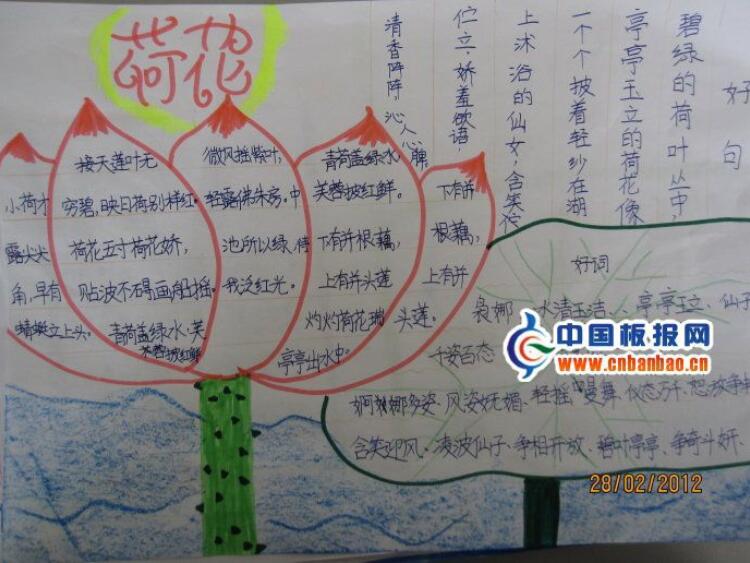 荷花
小荷才
露尖尖
角,早有
蜻蜓立上头。
接天莲叶无
穷碧,映日荷别样红。
荷花五寸荷花娇,
贴波不碍画船摇。
青荷盖绿水,芙
芙蓉披红鲜
微风摇紫叶,
轻露佛朱房。中
池所以绿,待
我泛红光。
青荷盖绿水
芙蓉披红鲜。
下有并根藕,
上有并头莲
灼灼荷花瑞
亭亭出水中。
下有并
根藕,
上有并
头莲。
好句
碧绿的荷叶丛中,
亭亭玉立的荷花像
一个个披着轻纱在湖
上沐浴的仙女,含笑
伫立,娇羞欲语
清香阵阵,沁人心脾
好词
袅娜、水清玉洁、亭亭玉立、仙子
千姿百态
婀娜多姿、风姿妩媚、轻摇曼舞、仪态万千、怒放争
含笑迎风、凌波仙子、争相开放、碧叶亭亭、争奇斗妍、
中国板报网
www.cnbanbao.cn
28/02/2012